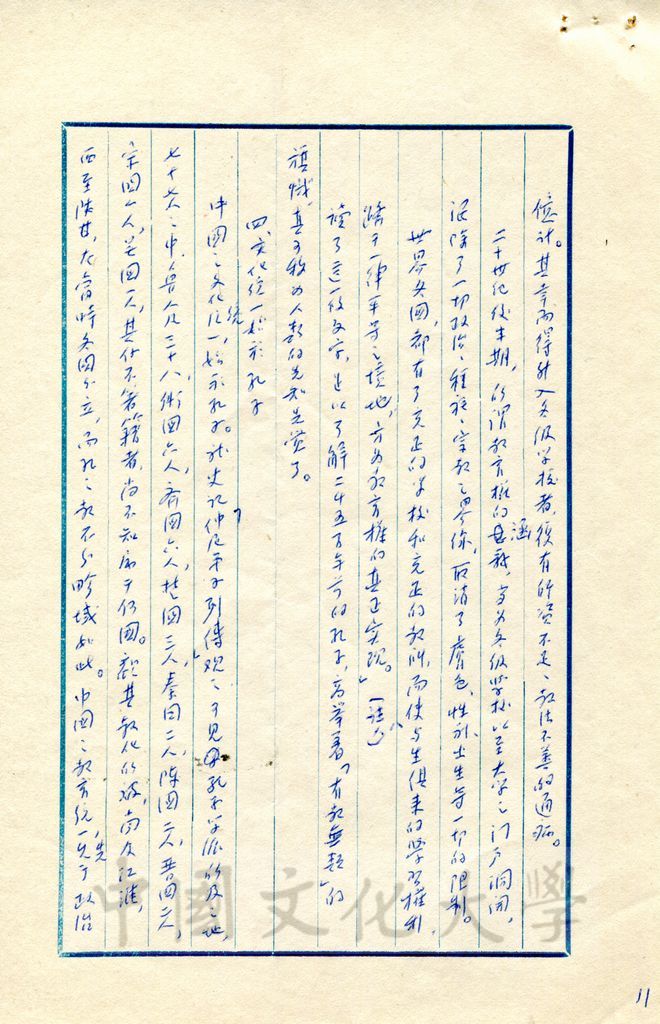 位計。其幸而得升入各級学校者，復有師資不足、教法不善的通病。
二十世紀後半期，所謂教育權的涵義，当为各級學校以至大学之门户洞開，
泯除了一切政治、種族、宗教之界係，取消了膚色、性别、出生等一切的限制。
世界各國，都有了充足的学校和充足的教師，而使与生俱來的學習權利，
躋于一律平等之境地，方为教育權的真正实现。」（註九）
讀了這一段文字，足以了解二千五百年前的孔子，高举着「有教無類」的
旗幟，真可称为人類的先知先覚了。
四、文化統一始於孔子
中國之文化統一，始於孔子。就史记「仲尼弟子列傳」观之，可見孔子学派所及之地，
七十七人之中，魯人凡三十八，衛国六人，齊国六人，楚国三人，秦国二人，陳国二人，晋国二人，
宋国一人，吴国一人，其他不著籍者，尚不知属于何國。観其教化的被，南及江淮，
西至陕甘，在當時各國分立，而孔子之教不分畛域如此。中國之教育統一先于政治
中國文化大學
11